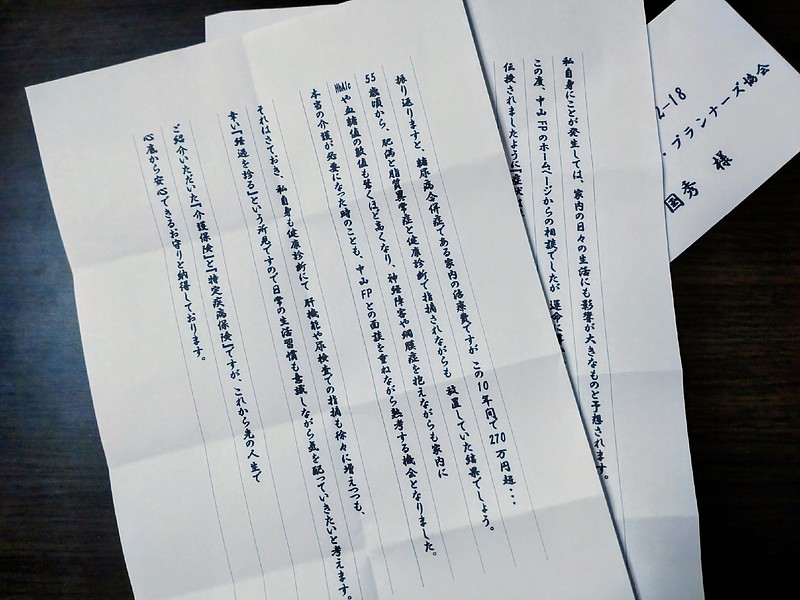 2-18
・プランナーズ協会
国秀 様
私自身にことが発生しては、家内の日々の生活にも影響が大きなものと予想されます。
この度、中山FPのホームページからの相談でしたが 運命
伝授されましたように『症状
振り返りますと、糖尿病合併症である家内の治療費ですが この10年間で270万円超・・・
55歳頃から、肥満と脂質異常症と健康診断で指摘されながらも 放置していた結果でしょう。
HbA1cや血糖値の数値も驚くほど高くなり、神経障害や網膜症を抱えながらも家内に
本当の介護が必要になった時のことも、中山FPとの面談を重ねながら熟考する機会となりました。
それはさておき、私自身も健康診断にて 肝機能や尿検査での指摘も徐々に増えつつも、
幸い『経過を診る』という所見ですので日常の生活習慣も意識しながら気を配っていきたいと考えます。
ご紹介いただいた『介護保険』と『特定疾病保険』ですが、これから先の人生で
心底から安心できるお守りと納得しております。